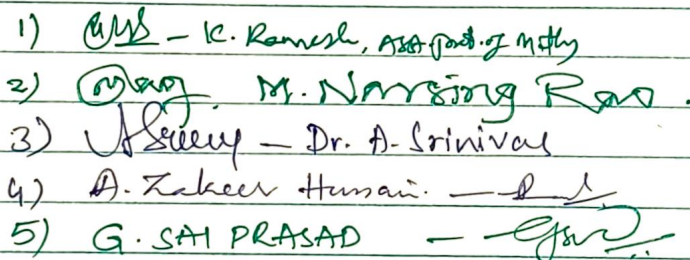 1) – K. Ramesh, Asst Prof. of Maths
2) M. Narsing Rao.
3) – Dr. A. Srinivas
4) A. Zakeer Hussain. –
5) G. SAI PRASAD –